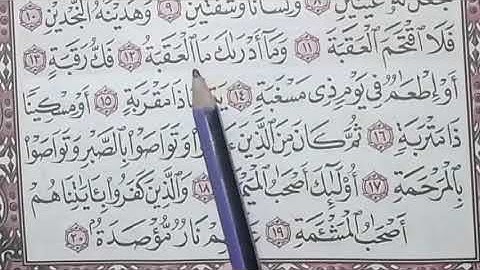 عَيْنَيْنِ ٨ وَلِسَانًا وَشَفَتَيْنِ ٩ وَهَدَيْنَٰهُ ٱلنَّجْدَيْنِ ١٠
فَلَا ٱقْتَحَمَ ٱلْعَقَبَةَ ١١ وَمَآ أَدْرَىٰكَ مَا ٱلْعَقَبَةُ ١٢ فَكُّ رَقَبَةٍ ١٣
أَوْ إِطْعَٰمٌ فِى يَوْمٍ ذِى مَسْغَبَةٍ ١٤ ذَا مَقْرَبَةٍ ١٥ أَوْ مِسْكِينًا
ذَا مَتْرَبَةٍ ١٦ ثُمَّ كَانَ مِنَ ٱلَّذِينَ وَتَوَاصَوْا۟ بِٱلصَّبْرِ وَتَوَاصَوْا۟
بِٱلْمَرْحَمَةِ ١٧ أُو۟لَٰٓئِكَ أَصْحَٰبُ ١٨ وَٱلَّذِينَ كَفَرُوا۟ بِـَٔايَٰتِنَا هُمْ
أَصْحَٰبُ ٱلْمَشْـَٔمَةِ ١٩ نَارٌ مُّؤْصَدَةٌۢ ٢٠